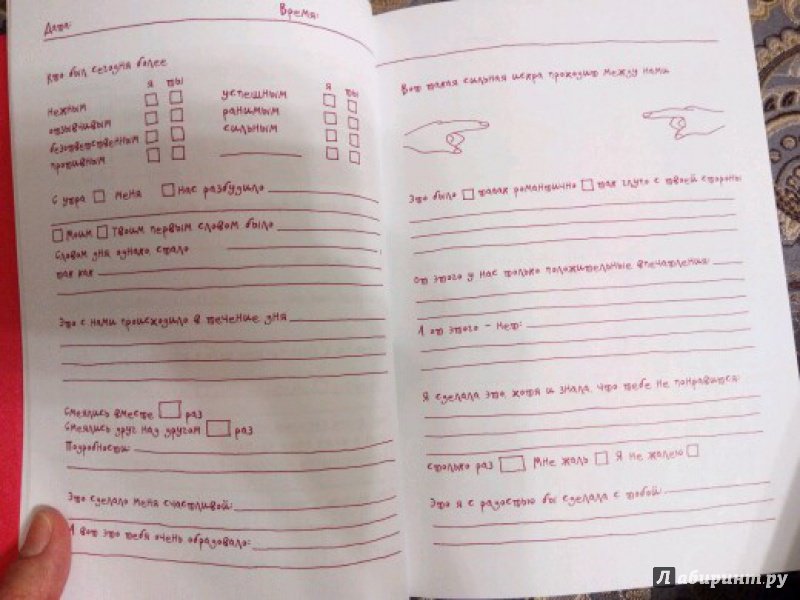 Дата:
Время:
Кто был сегодня более
я ты
нежным
отзывчивым
безответственным
противным
я ты
успешным
ранимым
сильным
С утра меня нас разбудило
Моим Твоим первым словом было
Словом дня однако стало
так как
Это с нами происходило в течение дня
Смеялись вместе раз
Смеялись друг над другом раз
Подробности:
Это сделало меня счастливой:
А вот это тебя очень обрадовало:
Вот такая сильная искра проходит между нами
Это было так романтично так глупо с твоей стороны
От этого у нас только положительные впечатления:
А от этого - нет:
Я сделала это, хотя и знала, что тебе не понравится:
столько раз Мне жаль Я не жалею
Это я с радостью бы сделала с тобой:
Лабиринт.ру